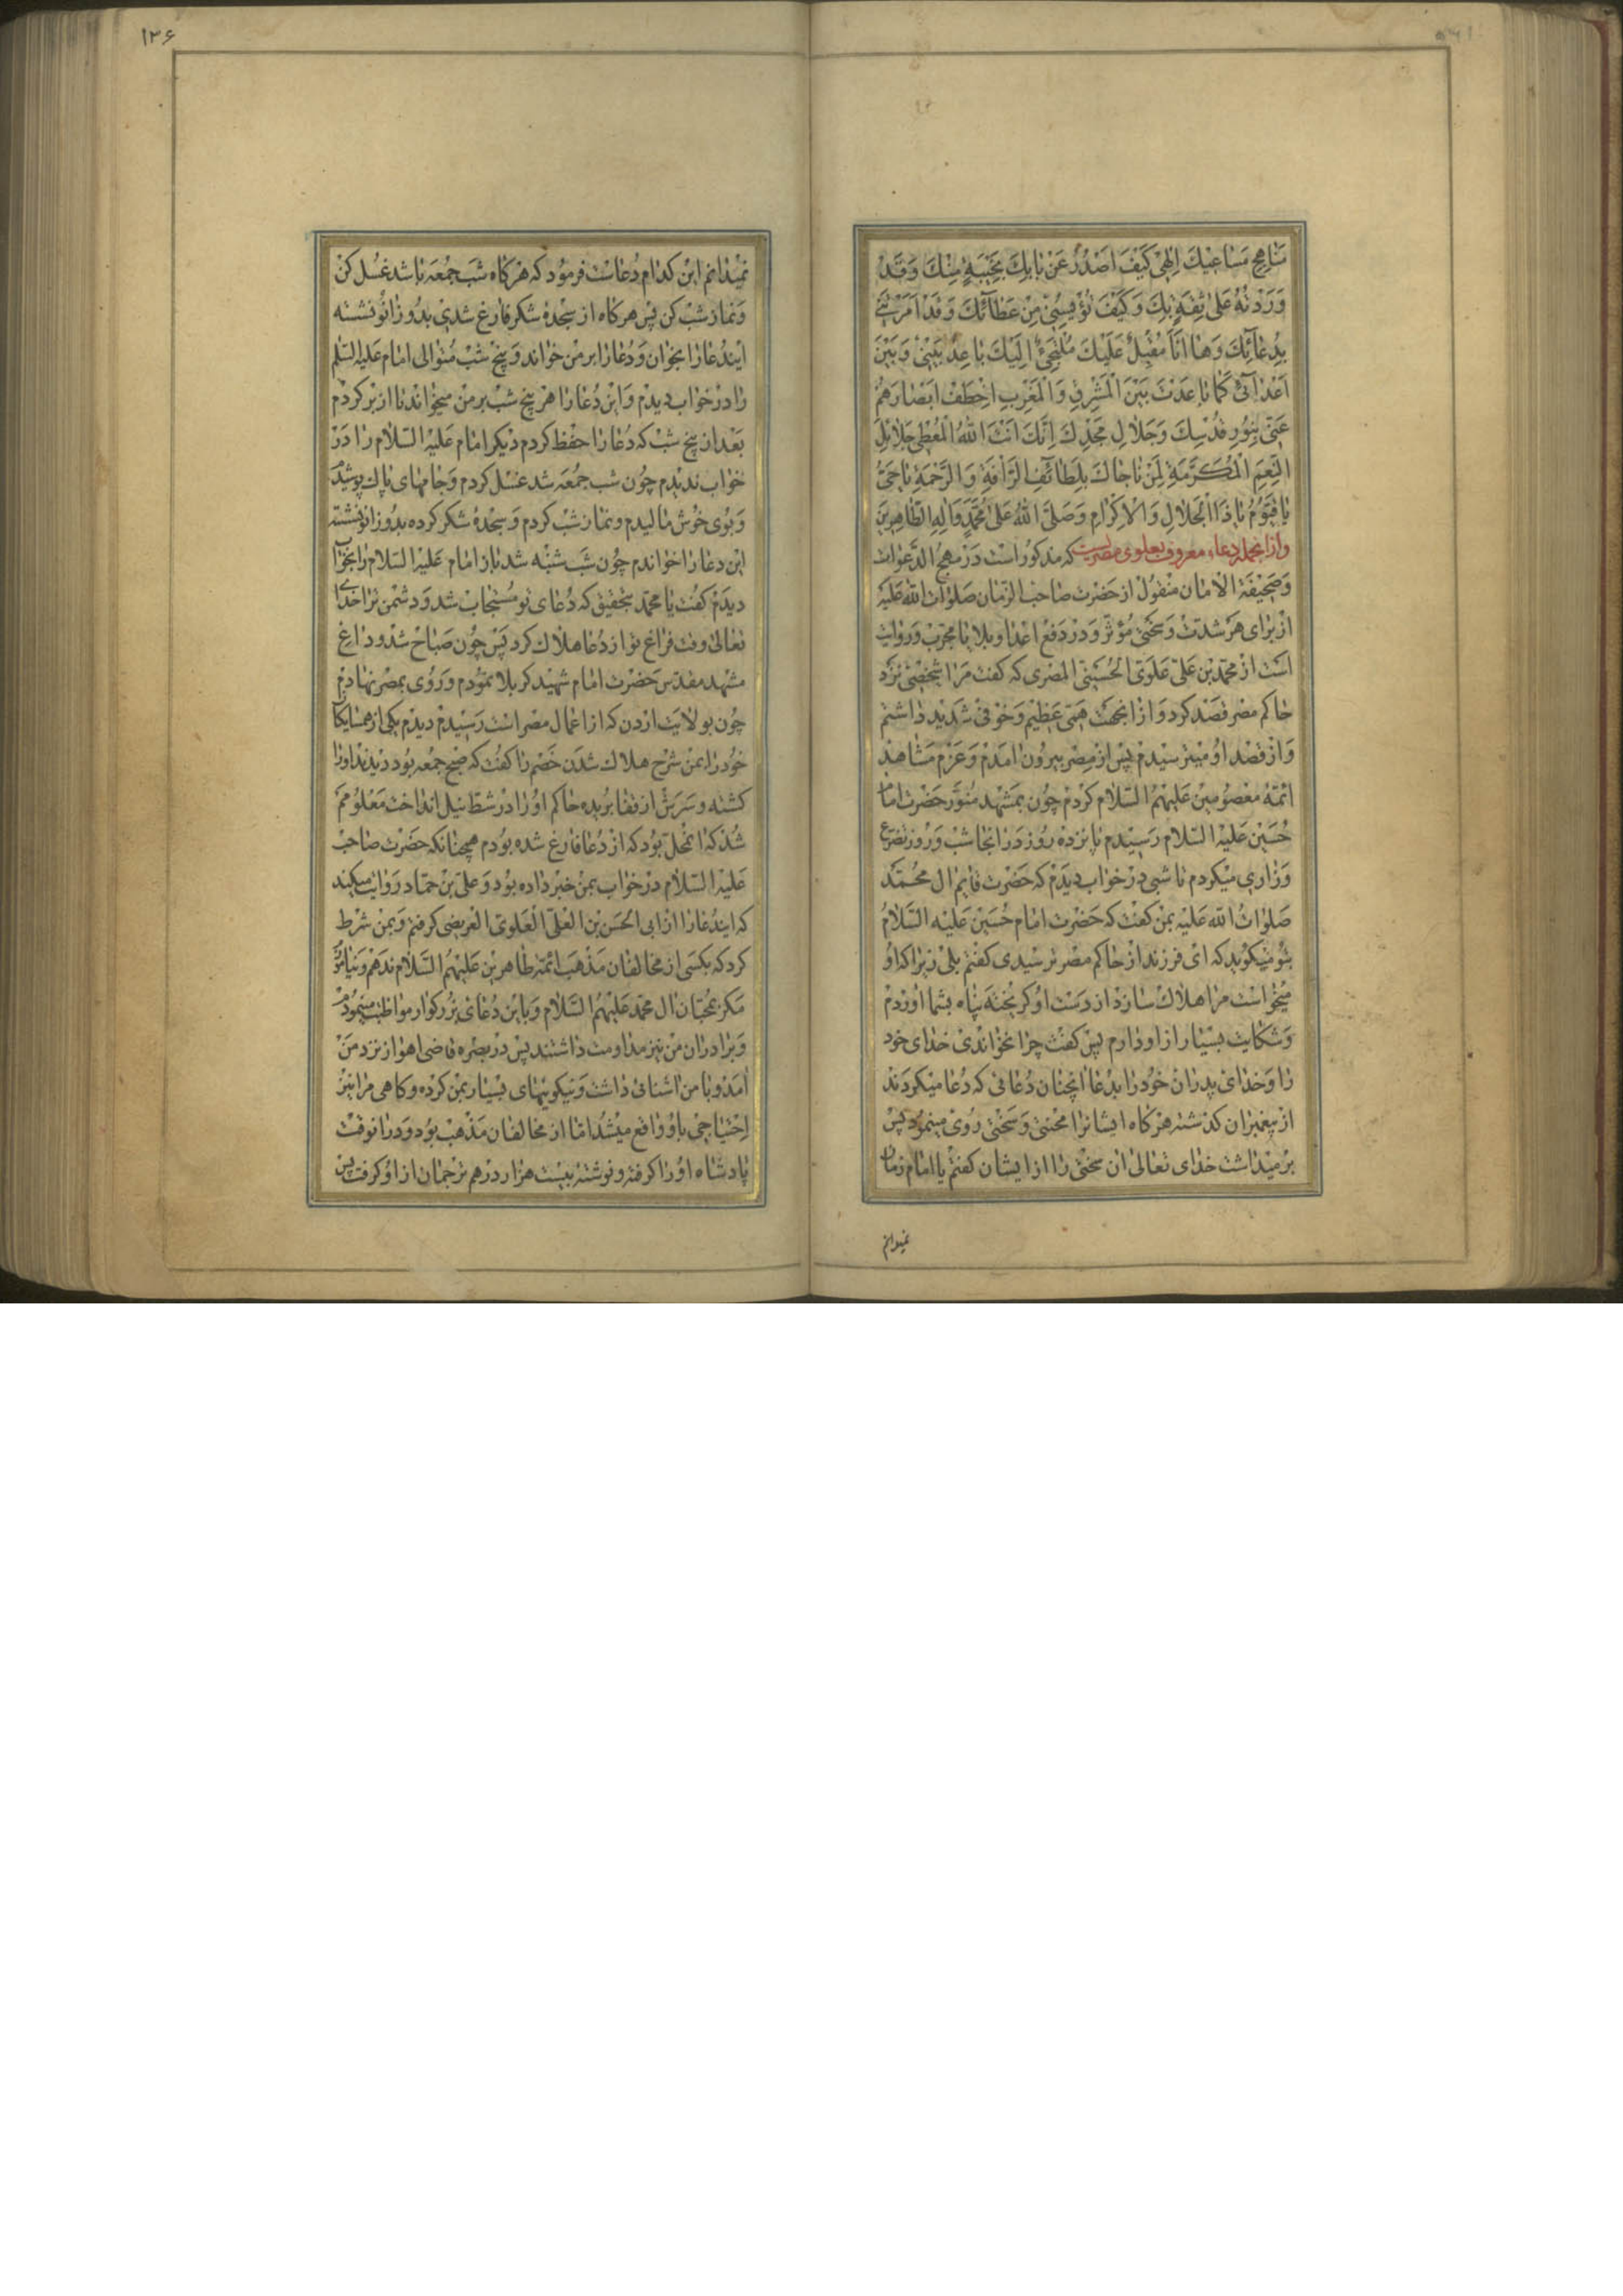 مَناهِجِ مَساعیکَ اِلٰهی کَیْفَ اَصْدُرُ عَنْ بابِکَ بِخَیْبَةٍ مِنْکَ وَقَدْ
وَرَدْتُهُ عَلیٰ ثِقَةٍ بِکَ وَکَیْفَ تُؤْیِسُنی مِنْ عَطآئِکَ وَقَدْ اَمَرْتَنی
بِدُعآئِکَ وَهٰا اَنَا مُقْبِلٌ عَلَیْکَ مُلْتَجِئٌ اِلَیْکَ باعِدْ بَیْنی وَبَیْنَ
اَعْدٰآئی کَمٰا باعَدْتَ بَیْنَ الْمَشْرِقِ وَالْمَغْرِبِ اِخْطَفْ اَبْصٰارَهُمْ
عَنّی بِنُورِ قُدْسِکَ وَجَلالِ مَجْدِکَ اِنَّکَ اَنْتَ اللهُ الْمُعْطی جَلائِلَ
النِّعَمِ الْمُکَرَّمَةِ لِمَنْ ناجاکَ بِلَطائِفِ الرَّاْفَةِ وَالرَّحْمَةِ یاحَیُّ
یاقَیُّومُ یاذَا الْجَلالِ وَالْاِکْرامِ وَصَلَّی اللهُ عَلیٰ مُحَمَّدٍ وَاٰلِهِ الطّاهِرینَ
وازانجمله دعاء معروف بعلوی مصریست که مذکور است در مهج الدعوات
وصحیفة الامان منقول از حضرت صاحب الزمان صلوات الله علیه
از برای هر شدت وسختی مؤثر ودر دفع اعدا وبلایا مجرب وروایت
است از محمد بن علی علوی الحسینی المصری که کفت مرا شخصی نزد
حاکم مصر قصد کرد وازانجهت همی عظیم وخوفی شدید داشتم
واز قصد او میترسیدم پس از مصر بیرون امدم وعزم مشاهد
ائمه معصومین علیهم السلام کردم چون بمشهد منور حضرت امام
حسین علیه السلام رسیدم پانزده روز درانجا شب وروز تضرع
وزاری میکردم تا شبی در خواب دیدم که حضرت قایم ال محمد
صلوات الله علیه بمن کفت که حضرت امام حسین علیه السلام
بتو میکوید که ای فرزند از حاکم مصر ترسیدی کفتم بلی زیرا که او
میخواست مرا هلاک سازد از دست او کریخته پناه بشما اوردم
وشکایت بسیار از او دارم پس کفت چرا نخواندی خدای خود
را وخدای پدران خود را بدعا انچنان دعائی که دعا میکردند
از پیغمبران کذشته هرکاه ایشانرا محنتی وسختی روی مینمود پس
برمیداشت خدای تعالی ان سختی را از ایشان کفتم یا امام زمان
نمیدانم
۱۳۶
نمیدانم این کدام دعاست فرمود که هرکاه شب جمعه باشد غسل کن
ونماز شب کن پس هرکاه از سجده شکر فارغ شدی بدو زانو نشسته
ایندعا را بخوان ودعا را بر من خواند وپنج شب متوالی امام علیه السلم
را در خواب دیدم واین دعا را هر پنج شب بر من میخواند تا از بر کردم
بعد از پنج شب که دعا را حفظ کردم دیکر امام علیه السلام را در
خواب ندیدم چون شب جمعه شد غسل کردم وجامهای پاک پوشیدم
وبوی خوش مالیدم ونماز شب کردم وسجده شکر کرده بدو زانو نشسته
این دعا را خواندم چون شب شنبه شد باز امام علیه السلام را بخواب
دیدم کفت یا محمد بتحقیق که دعای تو مستجاب شد ودشمن ترا خدای
تعالی وقت فراغ تو از دعا هلاک کرد پس چون صباح شد وداع
مشهد مقدس حضرت امام شهید کربلا نمودم وروی بمصر نهادم
چون بولایت اردن که از اعمال مصر است رسیدم دیدم یکی از همسایکان
خود را بمن شرح هلاک شدن خصم را کفت که صبح جمعه بود دیدند اورا
کشته وسرش از قفا بریده حاکم او را در شط نیل انداخت معلومم
شد که انمحل بود که از دعا فارغ شده بودم همچنانکه حضرت صاحب
علیه السلام در خواب بمن خبر داده بود وعلی بن حماد روایت میکند
که ایندعا را از ابی الحسن بن العلی العلوی العریضی کرفتم وبمن شرط
کرد که بکسی از مخالفان مذهب ائمه طاهرین علیهم السلام ندهم ونیاموزم
مکر بمحبان ال محمد علیهم السلام وباین دعای بزرکوار مواظبت مینمودم
وبرادران من نیز مداومت داشتند پس در بصره قاضی اهواز نزد من
امد وبا من اشنائی داشت ونیکوئیهای بسیار بمن کرده وکاهی مرا نیز
احتیاجی باو واقع میشد اما از مخالفان مذهب بود ودرانوقت
پادشاه او را کرفته ونوشته بیست هزار درهم ترجمان از او کرفت پس